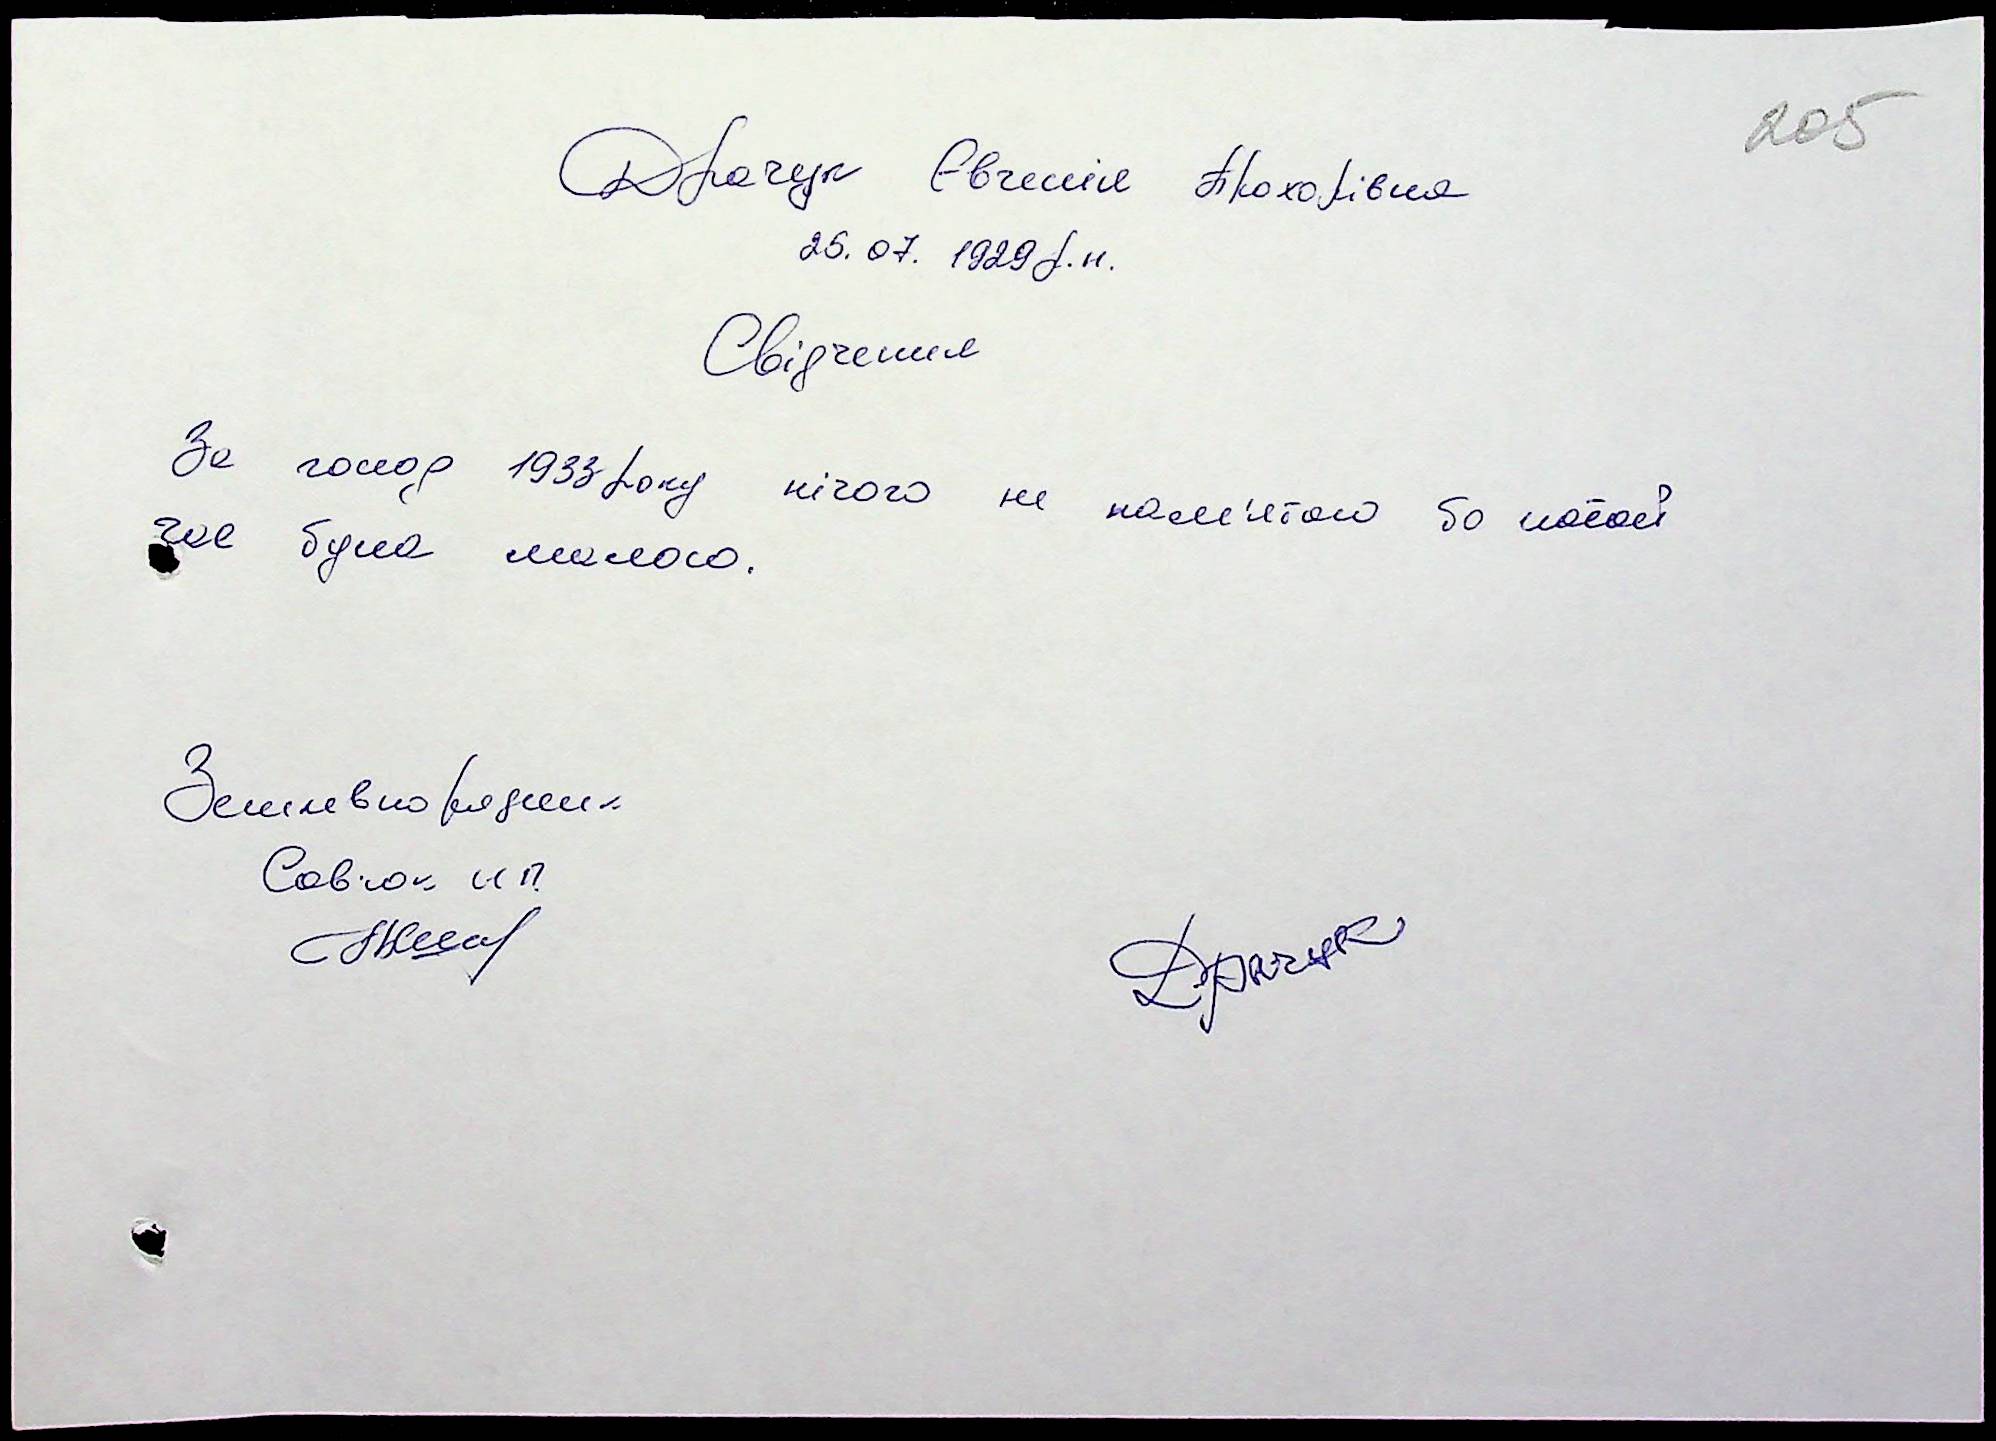 205
Драчук Євгенія Прохорівна
25.07.1929 р.н.
Свідчення
За голод 1933 року нічого не пам'ятаю бо на той
час була малою.
Землевпорядник
Савчок Н П.
Драчук